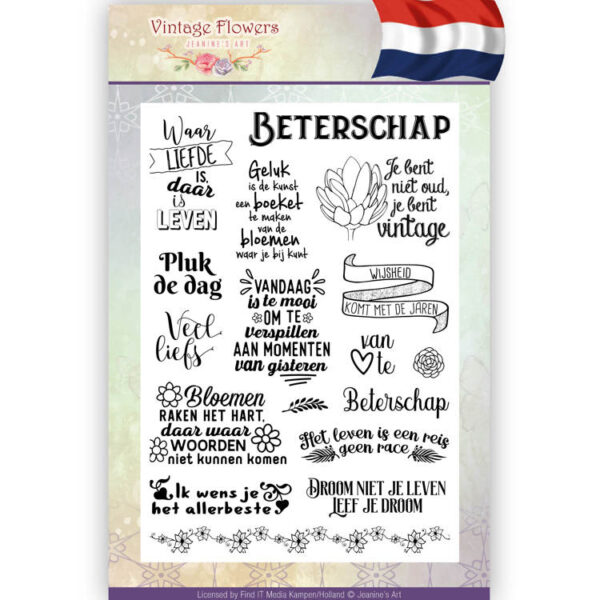 Vintage Flowers
JEANINE'S ART
BETERSCHAP
Waar
LIEFDE
IS,
daar
is
LEVEN
Geluk
is de kunst
een boeket
te maken
van de
bloemen
waar je bij kunt
Je bent
niet oud,
je bent
vintage
Pluk
de dag
VANDAAG
is te mooi
OM TE
verspillen
AAN MOMENTEN
van gisteren
WIJSHEID
KOMT MET DE JAREN
Veel
liefs
van
te
Bloemen
RAKEN HET HART,
daar waar
WOORDEN
niet kunnen komen
Beterschap
Het leven is een reis
geen race
Ik wens je
het allerbeste
DROOM NIET JE LEVEN
LEEF JE DROOM
Licensed by Find IT Media Kampen/Holland © Jeanine's Art